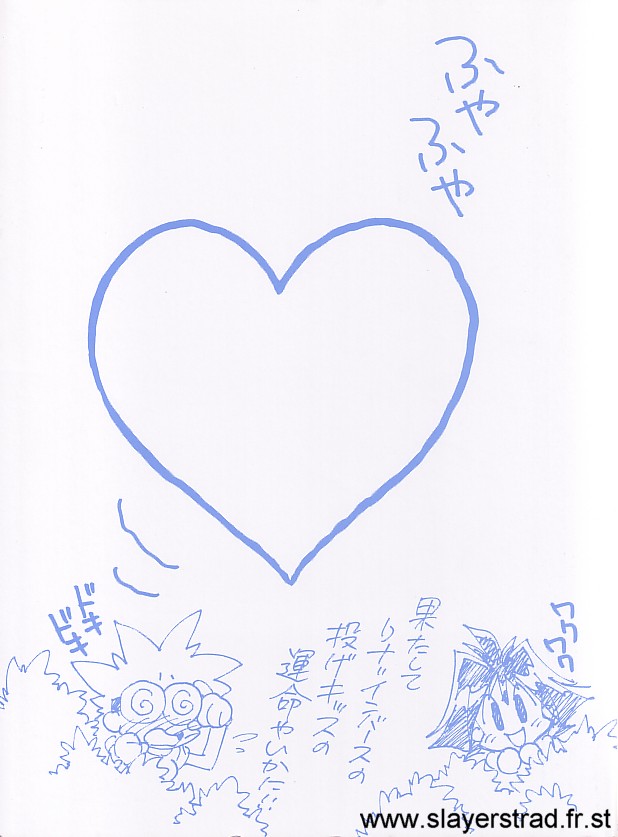 ふや
ふや
ドキ
ドキ
果たして
リナ=インバースの
投げキッスの
運命やいかに!!
ワク
ワク
www.slayerstrad.fr.st